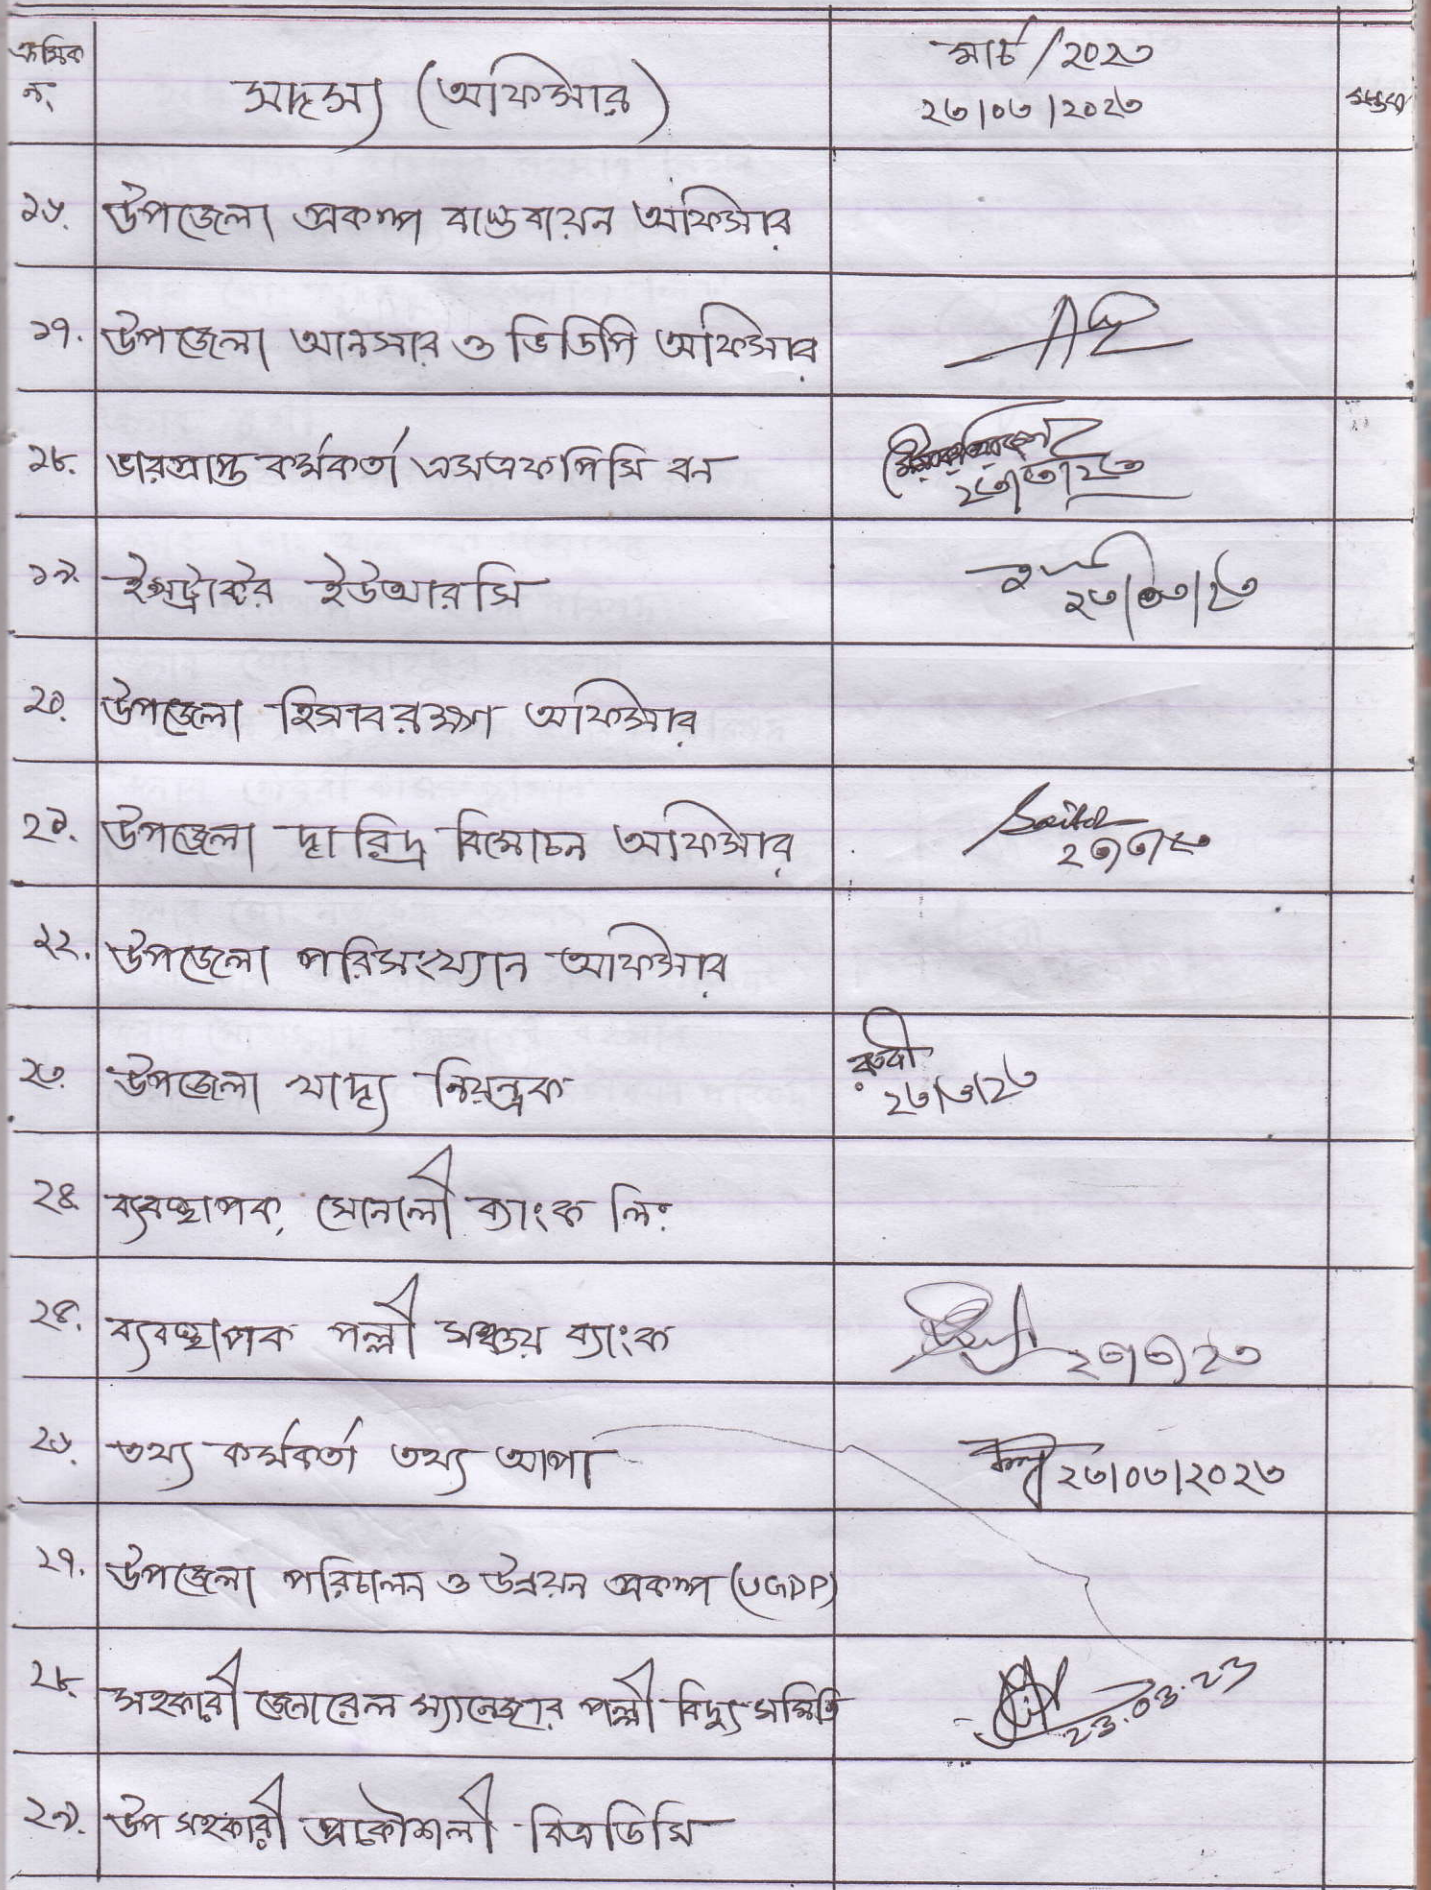 ক্রমিক নং
সদস্য (অফিসার)
মার্চ/২০২৩
২৩/০৩/২০২৩
মন্তব্য
১৬. উপজেলা প্রকল্প বাস্তবায়ন অফিসার
১৭. উপজেলা আনসার ও ভিডিপি অফিসার
১৮. ভারপ্রাপ্ত কর্মকর্তা এসএফপিসি বন
২৩/৩/২৩
১৯. ইন্সট্রাক্টর ইউআরসি
২৩/০৩/২৩
২০. উপজেলা হিসাবরক্ষণ অফিসার
২১. উপজেলা দারিদ্র বিমোচন অফিসার
২২. উপজেলা পরিসংখ্যান অফিসার
২৩. উপজেলা খাদ্য নিয়ন্ত্রক
রুবী
২৩/৩/২৩
২৪. ব্যবস্থাপক, সোনালী ব্যাংক লি:
২৫. ব্যবস্থাপক পল্লী সঞ্চয় ব্যাংক
২৩/৩/২৩
২৬. তথ্য কর্মকর্তা তথ্য আপা
২৩/০৩/২০২৩
২৭. উপজেলা পরিচালন ও উন্নয়ন প্রকল্প (UGDP)
২৮. সহকারী জেনারেল ম্যানেজার পল্লী বিদ্যু সমিতি
23.03.23
২৯. উপ সহকারী প্রকৌশলী বিএডিসি